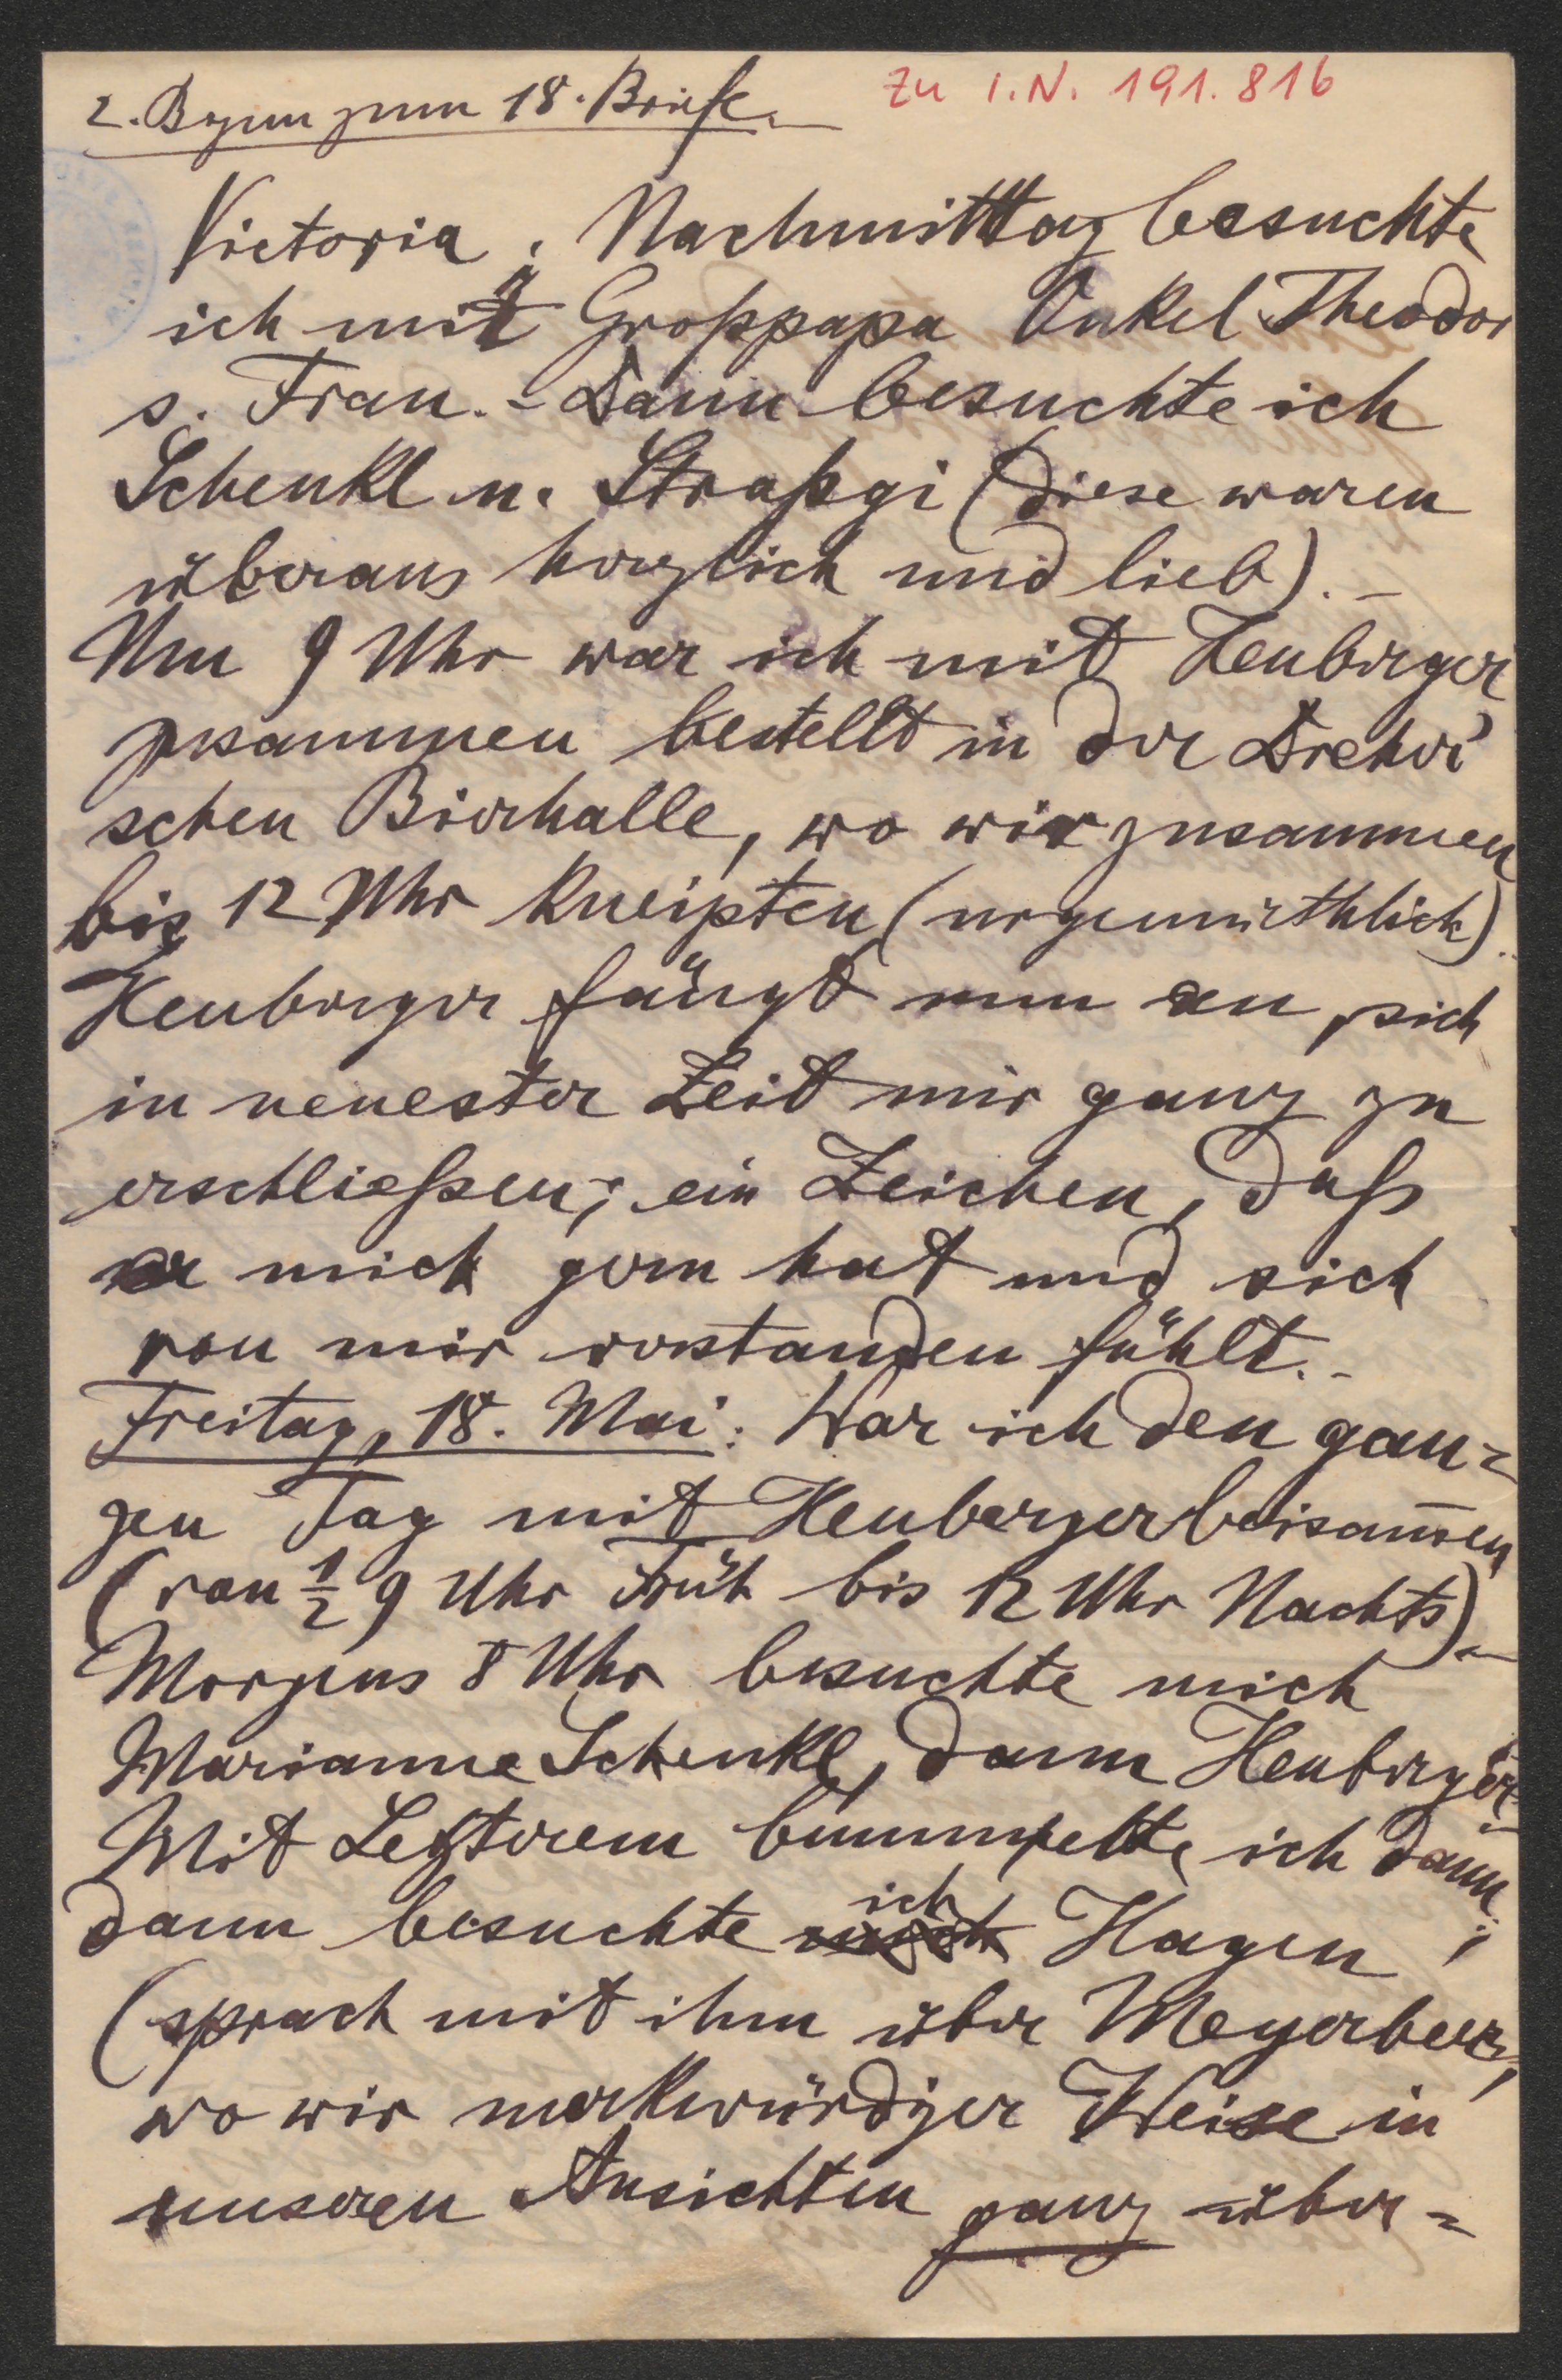 2. Bogen zum 18. Briefe.
Zu I.N. 191.816
Victoria; Nachmitttag besuchte
ich mit Großpapa Onkel Theodor
s. Frau. – Dann besuchte ich
Schenkl u. Straßgi (diese waren
überaus herzlich und lieb). –
Um 9 Uhr war ich mit Heuberger
zusammen bestellt in der Dreher'
schen Bierhalle, wo wir zusammen
bis 12 Uhr kneipten (urgemüthlich).
Heuberger fängt nun an, sich
in neuester Zeit mir ganz zu
erschließen; ein Zeichen, daß
er mich gern hat und sich
von mir verstanden fühlt. –
Freitag, 18. Mai: War ich den gan=
zen Tag mit Heuberger beisam̅en
(von ½ 9 Uhr Früh bis 12 Uhr Nachts). –
Morgens 8 Uhr besuchte mich
Marianne Schenkl, dann Heuberger.
Mit Letzterem bummelte ich dann;
dann besuchte ich Hagen;
(sprach mit ihm über Meyerbeer,
wo wir merkwürdiger Weise in
unseren Ansichten ganz über=